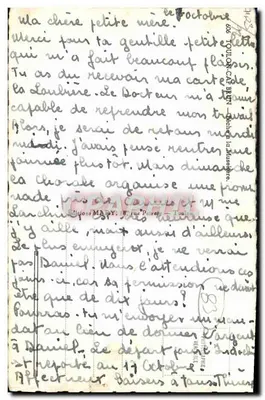 le 7 octobre
Ma chère petite mère.
Merci pour ta gentille petite lettre
qui m'a fait beaucoup plaisir.
Tu as du recevoir ma carte de
la Loubière. Le Docteur m'a trouvé
capable de reprendre mon travail
alors je serai de retour mardi
midi. J'avais pensé rentrer une
journée plustot. Mais dimanche
la organise une prome
nade
que
j'y aille, moi aussi d'ailleurs.
Le plus ennuyeux, je ne verrai
pas Daniel. Nous l'attendions ces
jours ci, car sa permission ne devait
être que de dix jours?
Pourras-tu m'envoyer un man
dat au lieu de donner l'argent
à Daniel. Le départ pour
est reporté au 17 octobre.
Affectueux Baisers à tous.